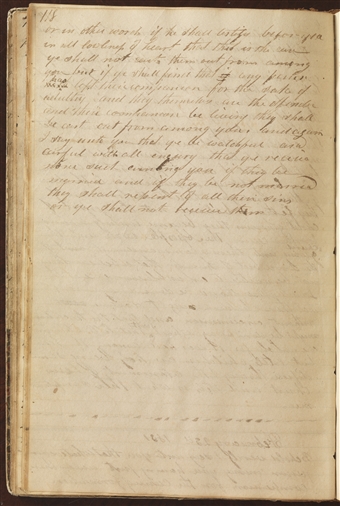 118
or in other words if he shall testify before you
in all lowliness of heart that this is the case
ye shall not cast them out from among
you but if ye shall find that any person
has left their companion for the sake of
adultery and they themselves are the offender
and their companions be living they shall
be cast out from among you and again
I say unto you that ye be watchful and
careful with all inquiry that ye receive
none such among you if they be
married and if they be not married
they shall repent of all their sins
or ye shall not receive them